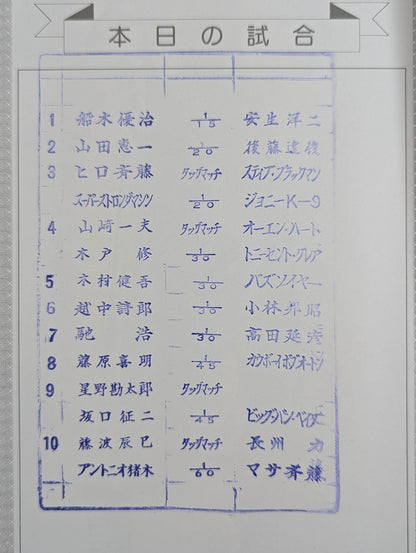 本日の試合
1 船木優治 1/15 安生洋二
2 山田恵一 1/20 後藤達俊
3 ヒロ斉藤 タッグマッチ スティブ・ブラックマン
スーパーストロングマシン 1/20 ジョニーK-9
4 山崎一夫 タッグマッチ オーエン・ハート
木戸修 1/30 トニー・セント・クレア
5 木村健吾 1/30 バズソイヤー
6 越中詩郎 1/30 小林邦昭
7 馳浩 1/30 高田延彦
8 藤原喜明 1/45 カウボーイボブオートン
9 星野勘太郎 タッグマッチ
坂口征二 1/45 ビッグ・バン・ベイダー
10 藤波辰巳 タッグマッチ 長州力
アントニオ猪木 1/60 マサ斉藤